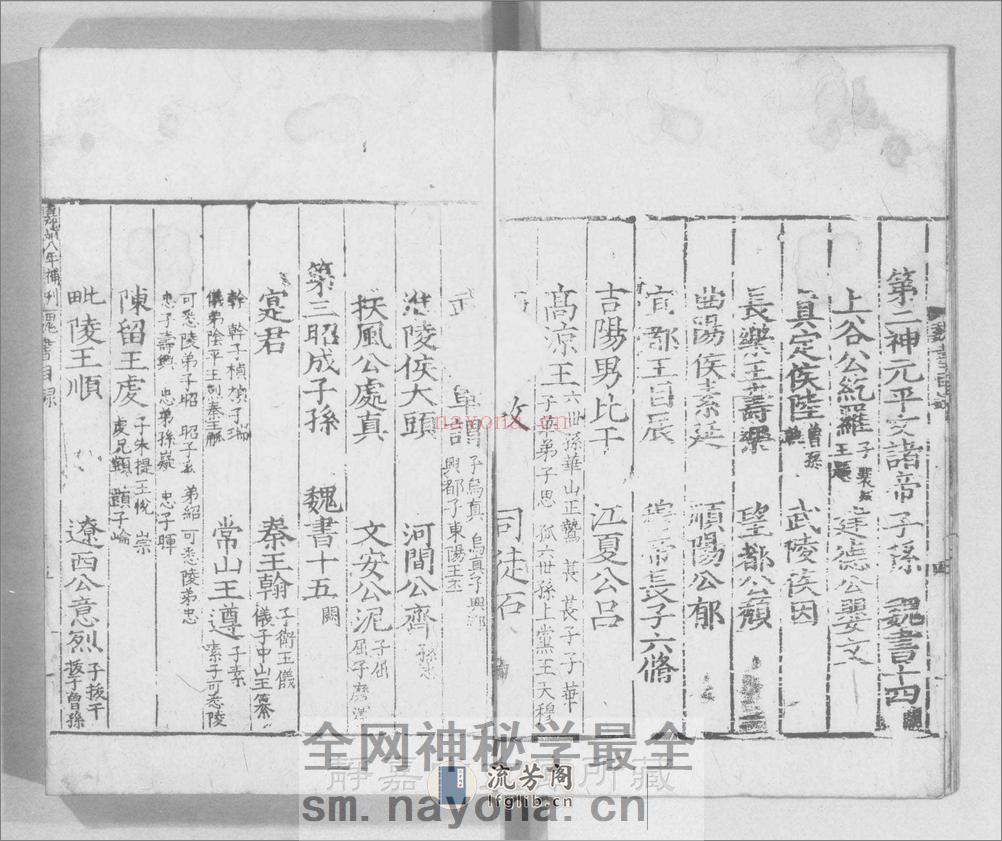 第二神元平文諸帝子孫 魏書十四 闕
上谷公紇羅 子 建德公嬰文
真定侯陸 曾孫 軌 武陵侯因
長樂王壽樂 望都公頹
曲陽侯素延 順陽公郁
宜都王目辰 帝長子六脩
吉陽男比干 江夏公呂
高涼王 六世孫華山王鷙 萇 萇子子華
子華弟子思 孤六世孫上黨王天穆
司徒石
武 謂 子烏真 烏真子興都
興都子東陽王丕
淮陵侯大頭 河間公齊
扶風公處真 文安公泥 子屈
屈子磨渾
第三昭成子孫 魏書十五 闕
寔君 秦王翰 子衛王儀
儀子中山王纂
幹 幹子禎 禎子瑞
儀弟陰平王烈 秦王觚 常山王遵 子素
素子可悉陵
可悉陵弟子昭 昭子玄 弟紹 可悉陵弟忠
忠子壽興 忠弟孫嶷 忠子暉
陳留王虔 子朱提王悅 崇
虔兄顗 顗子崘
毗陵王順 遼西公意烈 子拔干
拔子曾孫
嘉靖八年補刊 魏書目錄
全网神秘学最全
静嘉 所藏
流芳阁
lfglib.cn
sm.nayona.cn
nayona.cn